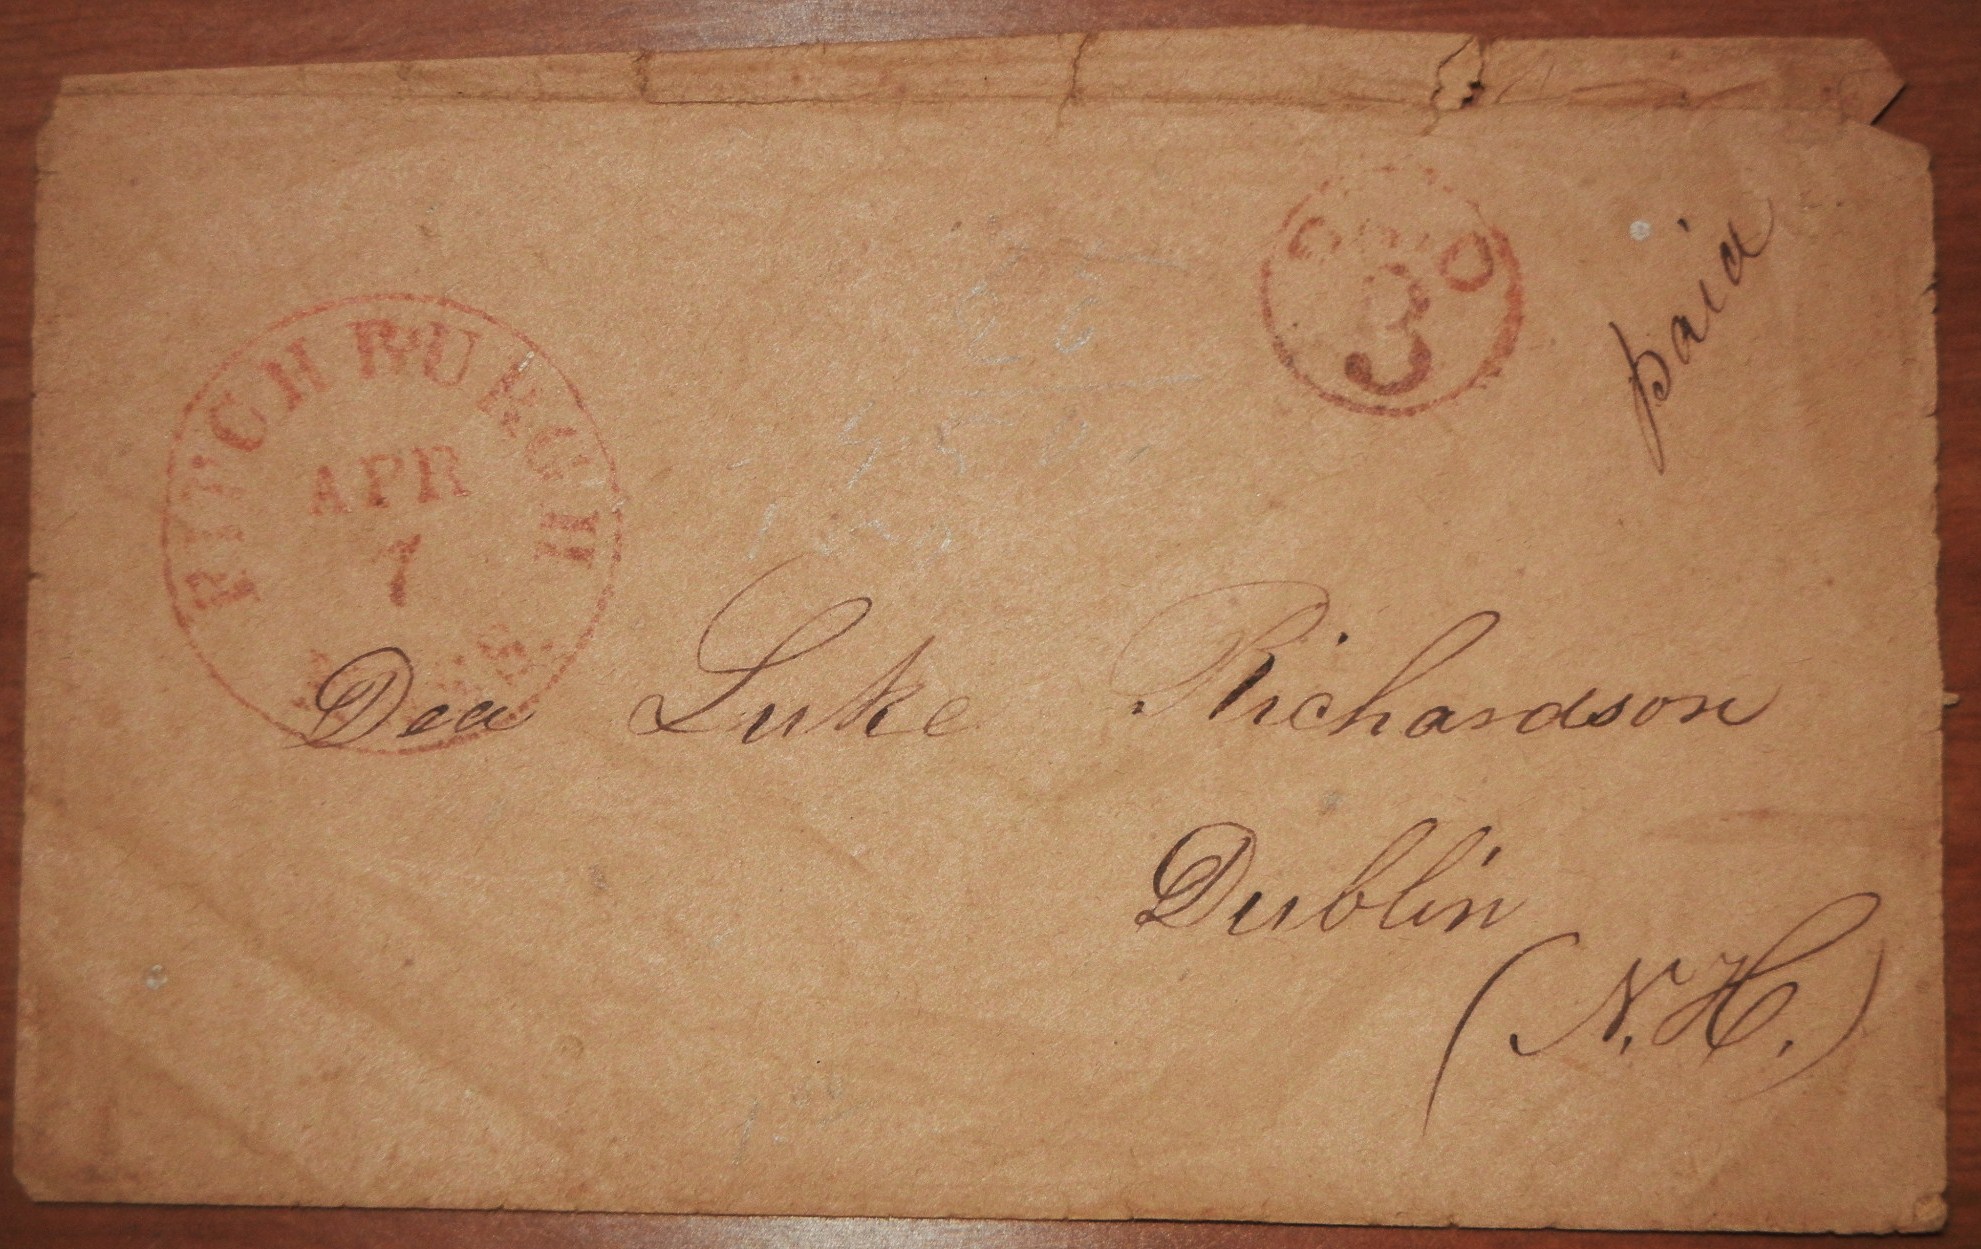 FITCHBURGH
APR
7
MS.
PAID
3
paid
Dea Luke Richardson
Dublin
(N.H.)